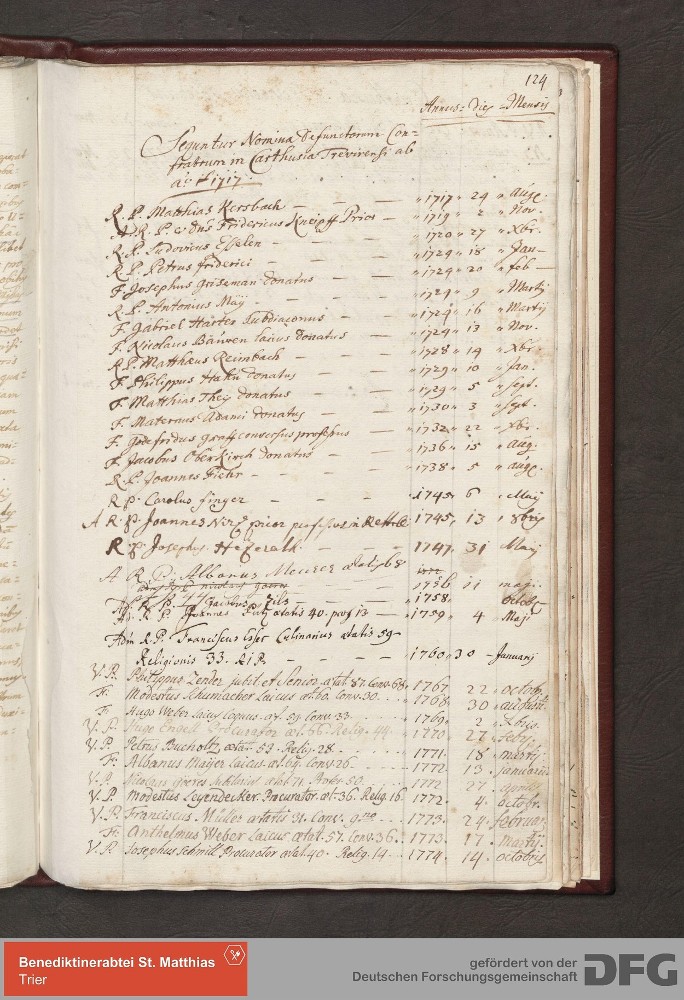 124
Annus = dies = Mensis
Sequntur Nomina defunctorum Con=
fratrum in Carthusia Trevirensi ab
ao 1717.
R. P. Matthias Kersbach — 1717 " 24 " Aug.
R. P. Fridericus Kneipff Prior — 1719 " 2 " Nov.
R. P. Ludovicus Esselen — 1720 " 27 " Xbr.
R. P. Petrus friderici — 1724 " 18 " Jan —
F. Josephus Griseman donatus — 1724 " 20 " feb —
R. P. Antonius Maÿ — 1724 " 9 " Martÿ
F. Gabriel Harter Subdiaconus — 1724 " 16 " Martÿ
F. Nicolaus Baüwen laicus donatus 1724 " 13 " Nov.
R. P. Matthæus Reimbach — 1728 " 14 " Xbr.
F. Philippus Hahn donatus — 1729 " 10 " Jan.
F. Matthias Theÿ donatus — 1729 " 5 " sept.
F. Maternus Adami donatus — 1730 " 3 " sept.
F. Godefridus Graff conversus professus 1732 " 22 " Xbr.
F. Jacobus Oberkirch donatus — 1736 " 15 " Aug.
R. P. Joannes Flehr — 1738 " 5 " aug.
R. P. Carolus finger — 1745 6 Maÿ
A R. P. Joannes prior professus in Rettel 1745, 13 8bris
R. P. Josephus Hezerath — 1747 31 Maÿ
A R. P. Albanus ætatis 68 1756 11 maji
R. P. Jacobus Zils — 1758. octob
R. P. Joannes ætatis 40. prof 13 — 1759 4 Maji
Adm R. P. Franciscus Eser Culinarius ætatis 59
Religionis 33. R.I.P. — 1760 " 30 — Januarÿ
V. P. Philippus Zender jubil. et Senior ætat. 87. Conv. 68. 1767 22 octob
F. Modestus Schumacher Laicus æt. 60. Conv. 30. 1768. 30 august
F. Hugo Weber laicus Coquus. æt. 59. Conv. 33. 1769. 2 Xbris.
V. P. Hugo Engell Procurator æt. 66. Relig. 44. 1770 27 febr.
V. P. Petrus Bucholtz ætat. 53. Relig. 28. 1771. 18 martÿ
F. Albanus Maÿer Laicus æt. 69. Conv. 26 — 1772 13. januarii
V. P. Nicolaus Jubilarius ætat. 71. Profes. 50. 1772 27 aprilis
V. P. Modestus Leÿendecker. Procurator. æt. 36. Relig. 16 1772. 4. octobr.
V. P. Franciscus. Müller ætatis 31. Conv. 9no 1773. 24. februar.
F. Anthelmus Weber Laicus ætat. 57. Conv. 36. 1773. 17. Martÿ
V. P. Josephus Schmitt Procurator ætat. 40. Relig. 14. 1774. 14. octobris
Benediktinerabtei St. Matthias
Trier
gefördert von der
Deutschen Forschungsgemeinschaft
DFG